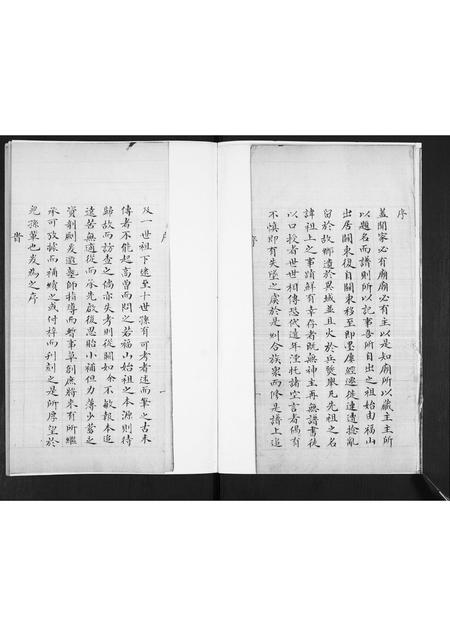 序
蓋聞家必有廟廟必有主以是知廟所以藏主主所
以題名而譜則所以記事吾所自出之祖始由福山
出居關東後自關東移至即墨屢經遷徙連遭捻亂
留於故鄉遺於異城並且火於兵燹舉凡先祖之名
諱祖上之事蹟鮮有幸存者既無神主再無譜書徒
以口授者世世相傳恐代遠年湮托諸空言者偶有
不慎即有失墜之虞於是則合族眾而修是譜上追
序
及一世祖下逮至十世孫有可考者述而筆之古未
傳者不能起高曾而問之若福山始祖之本源則待
歸故而訪查之倘亦失考則從闕如余不敏報本追
遠苦無適從而承先啟後思貽小補但力薄少蓄乏
資剞劂爰邀塾師指導而暫事草創庶將來有所繼
承可攷據而補續之或付梓而刊刻之是所厚望於
兒孫輩也爰為之序